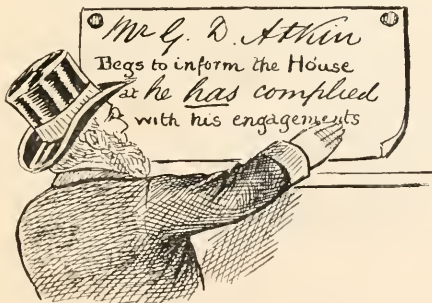 Mr G. D. Atkin
Begs to inform the House
at he has complied
with his engagements